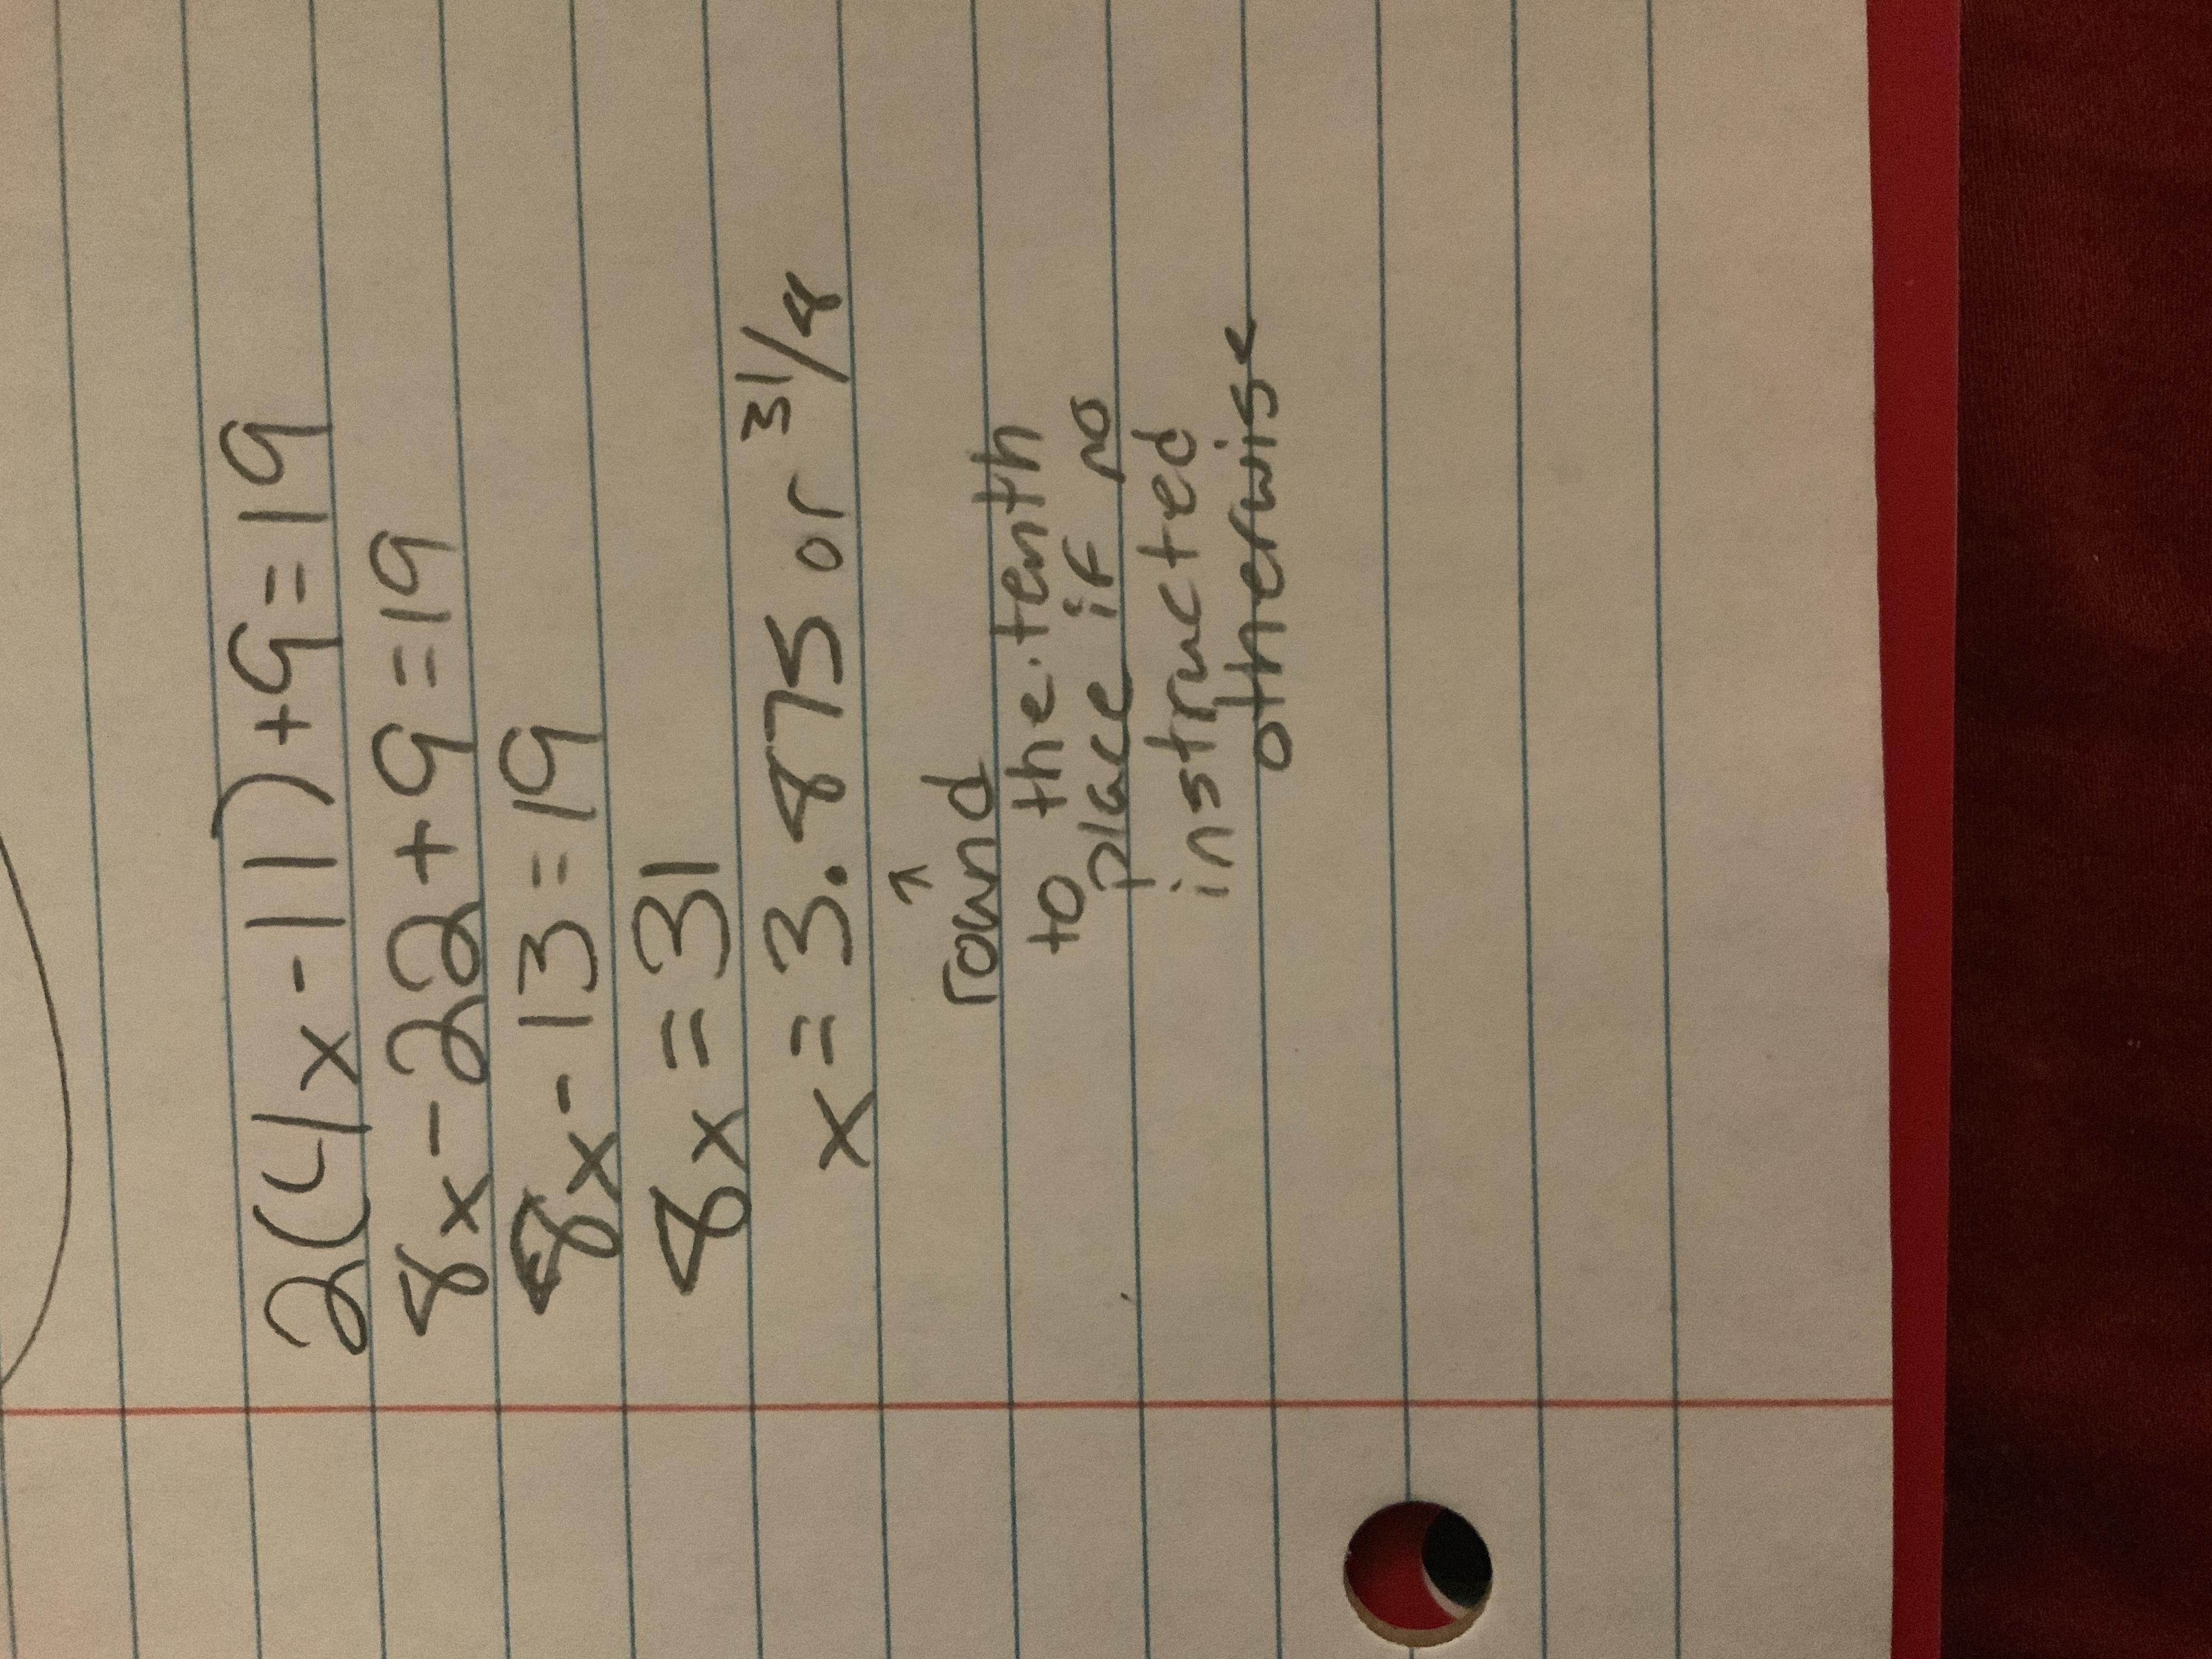 2(4x-11)+9=19
8x-22+9=19
8x-13=19
8x=31
x=3.875 or 31/8
↑
round
to the tenth
place if no
instructed
otherwise